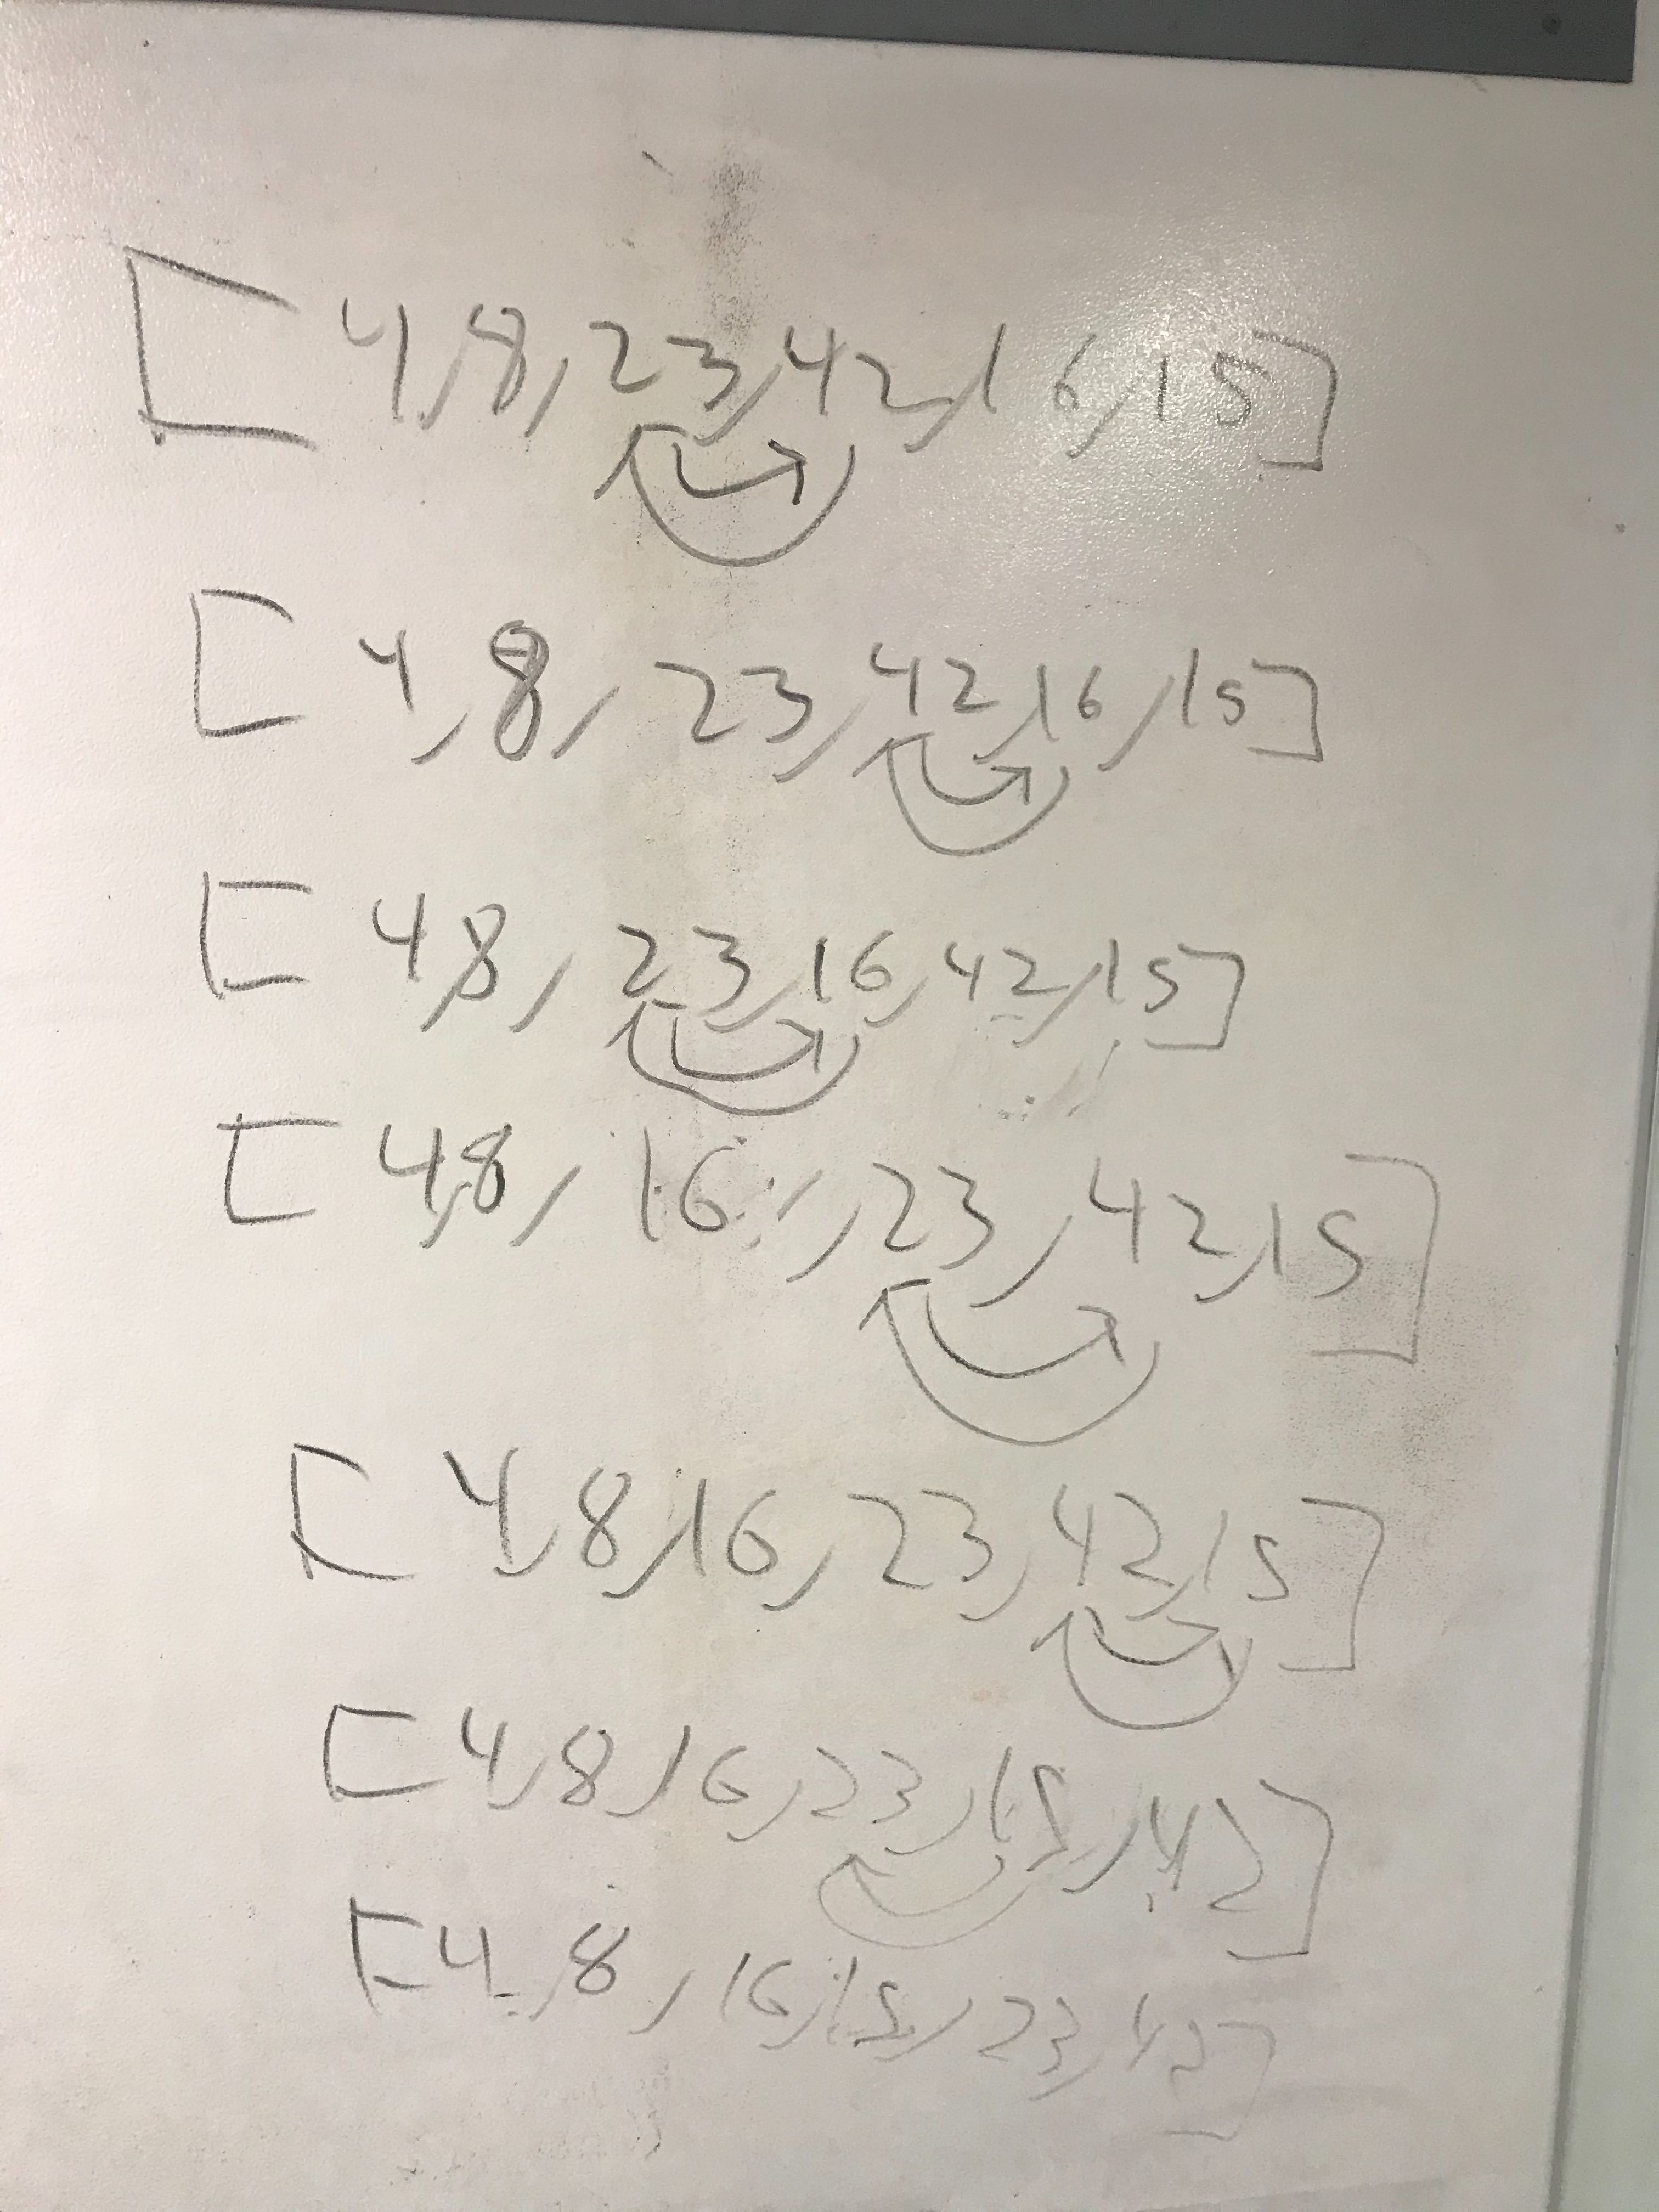 [4,8,23,42,16,15]
[4,8,23,42,16,15]
[4,8,23,16,42,15]
[4,8,16,,23,42,15]
[4,8,16,23,42,15]
[4,8,16,23,15,42]
[4,8,16,15,23,42]